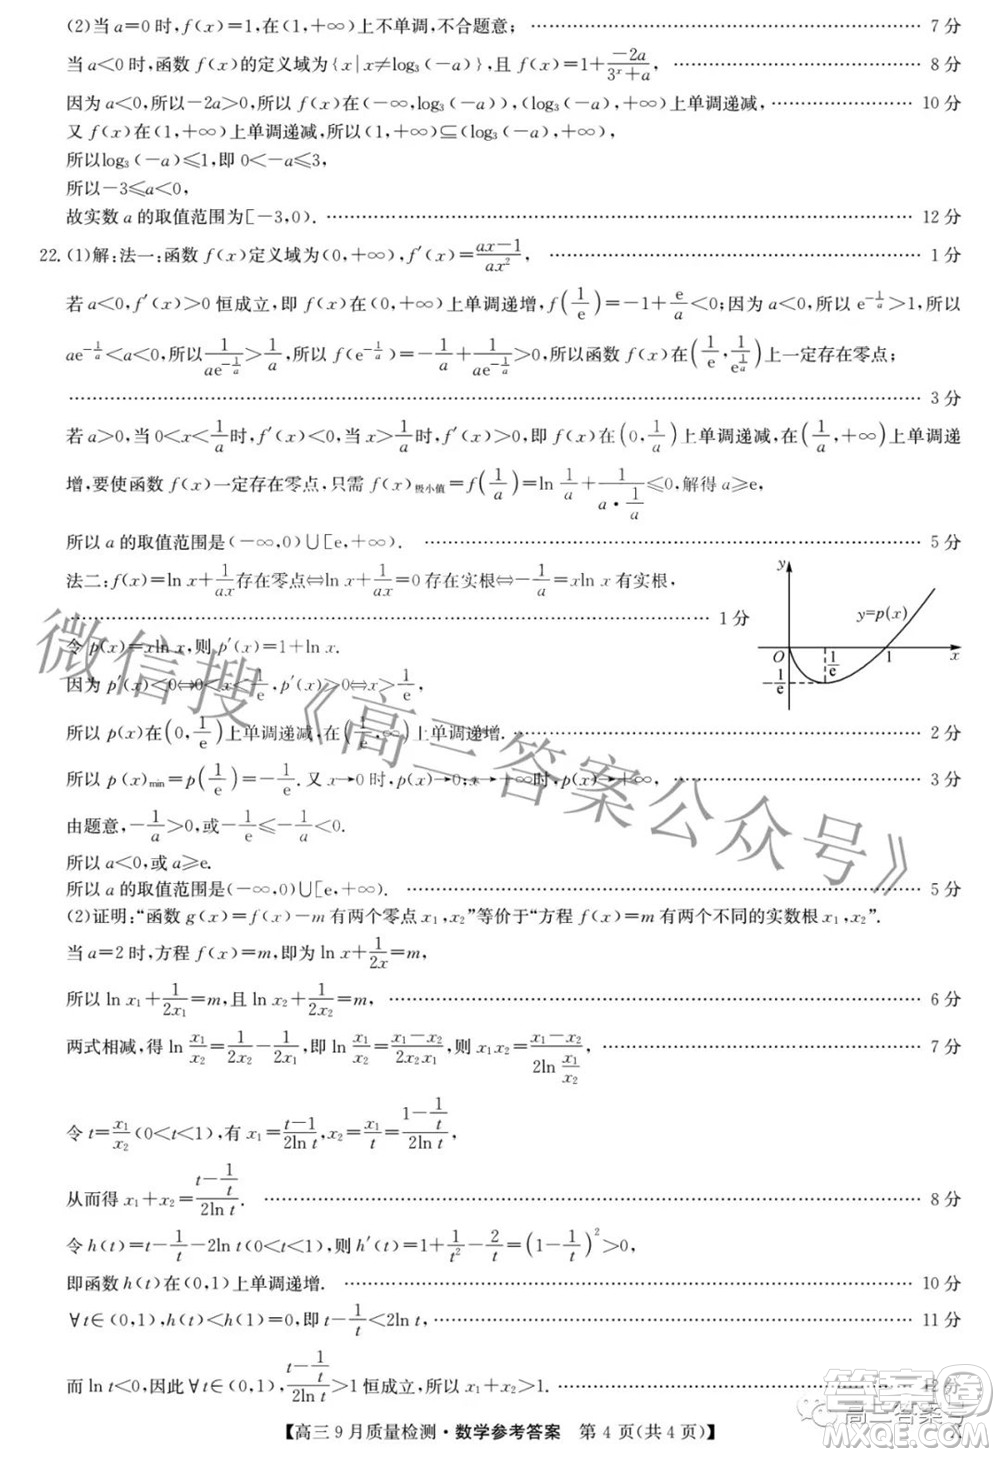 (2)当a=0时,f(x)=1,在(1,+∞)上不单调,不合题意; 7分
当a<0时,函数f(x)的定义域为{x|x≠log₃(-a)},且f(x)=1+\frac{-2a}{3^x+a}, 8分
因为a<0,所以-2a>0,所以f(x)在(-∞,log₃(-a)),(log₃(-a),+∞)上单调递减, 10分
又f(x)在(1,+∞)上单调递减,所以(1,+∞)⊆(log₃(-a),+∞),
所以log₃(-a)≤1,即0<-a≤3,
所以-3≤a<0,
故实数a的取值范围为[-3,0). 12分
22.(1)解:法一:函数f(x)定义域为(0,+∞),f′(x)=\frac{ax-1}{ax^2}, 1分
若a<0,f′(x)>0恒成立,即f(x)在(0,+∞)上单调递增,f(\frac{1}{e})=-1+\frac{e}{a}<0;因为a<0,所以e^{-\frac{1}{a}}>1,所以
ae^{-\frac{1}{a}}<a<0,所以\frac{1}{ae^{-\frac{1}{a}}}>\frac{1}{a},所以f(e^{-\frac{1}{a}})=-\frac{1}{a}+\frac{1}{ae^{-\frac{1}{a}}}>0,所以函数f(x)在(\frac{1}{e},\frac{1}{e^{\frac{1}{a}}})上一定存在零点;
3分
若a>0,当0<x<\frac{1}{a}时,f′(x)<0,当x>\frac{1}{a}时,f′(x)>0,即f(x)在(0,\frac{1}{a})上单调递减,在(\frac{1}{a},+∞)上单调递
增,要使函数f(x)一定存在零点,只需f(x)极小值=f(\frac{1}{a})=ln\frac{1}{a}+\frac{1}{a·\frac{1}{a}}≤0,解得a≥e,
所以a的取值范围是(-∞,0)∪[e,+∞). 5分
法二:f(x)=ln x+\frac{1}{ax}存在零点⇔ln x+\frac{1}{ax}=0存在实根⇔-\frac{1}{a}=xln x有实根,
1分
令p(x)=xln x,则p′(x)=1+ln x.
因为p′(x)<0⇔0<x<\frac{1}{e},p′(x)>0⇔x>\frac{1}{e},
所以p(x)在(0,\frac{1}{e})上单调递减,在(\frac{1}{e},+∞)上单调递增. 2分
所以p(x)min=p(\frac{1}{e})=-\frac{1}{e}.又x→0时,p(x)→0;x→+∞时,p(x)→+∞, 3分
由题意,-\frac{1}{a}>0,或-\frac{1}{e}≤-\frac{1}{a}<0.
所以a<0,或a≥e.
所以a的取值范围是(-∞,0)∪[e,+∞). 5分
y
y=p(x)
O
\frac{1}{e}
1
x
-\frac{1}{e}
(2)证明:“函数g(x)=f(x)-m有两个零点x₁,x₂”等价于“方程f(x)=m有两个不同的实数根x₁,x₂”.
当a=2时,方程f(x)=m,即为ln x+\frac{1}{2x}=m,
所以ln x₁+\frac{1}{2x₁}=m,且ln x₂+\frac{1}{2x₂}=m, 6分
两式相减,得ln\frac{x₁}{x₂}=\frac{1}{2x₂}-\frac{1}{2x₁},即ln\frac{x₁}{x₂}=\frac{x₁-x₂}{2x₂x₁},则x₁x₂=\frac{x₁-x₂}{2ln\frac{x₁}{x₂}}, 7分
令t=\frac{x₁}{x₂}(0<t<1),有x₁=\frac{t-1}{2ln t},x₂=\frac{x₁}{t}=\frac{1-\frac{1}{t}}{2ln t},
从而得x₁+x₂=\frac{t-\frac{1}{t}}{2ln t}. 8分
令h(t)=t-\frac{1}{t}-2ln t(0<t<1),则h′(t)=1+\frac{1}{t^2}-\frac{2}{t}=(1-\frac{1}{t})^2>0,
即函数h(t)在(0,1)上单调递增. 10分
∀t∈(0,1),h(t)<h(1)=0,即t-\frac{1}{t}<2ln t, 11分
而ln t<0,因此∀t∈(0,1),\frac{t-\frac{1}{t}}{2ln t}>1恒成立,所以x₁+x₂>1. 12分
【高三9月质量检测·数学参考答案 第4页(共4页)】
X
微信搜《高三答案公众号》
高三答案号
答案圈
MXQE.COM